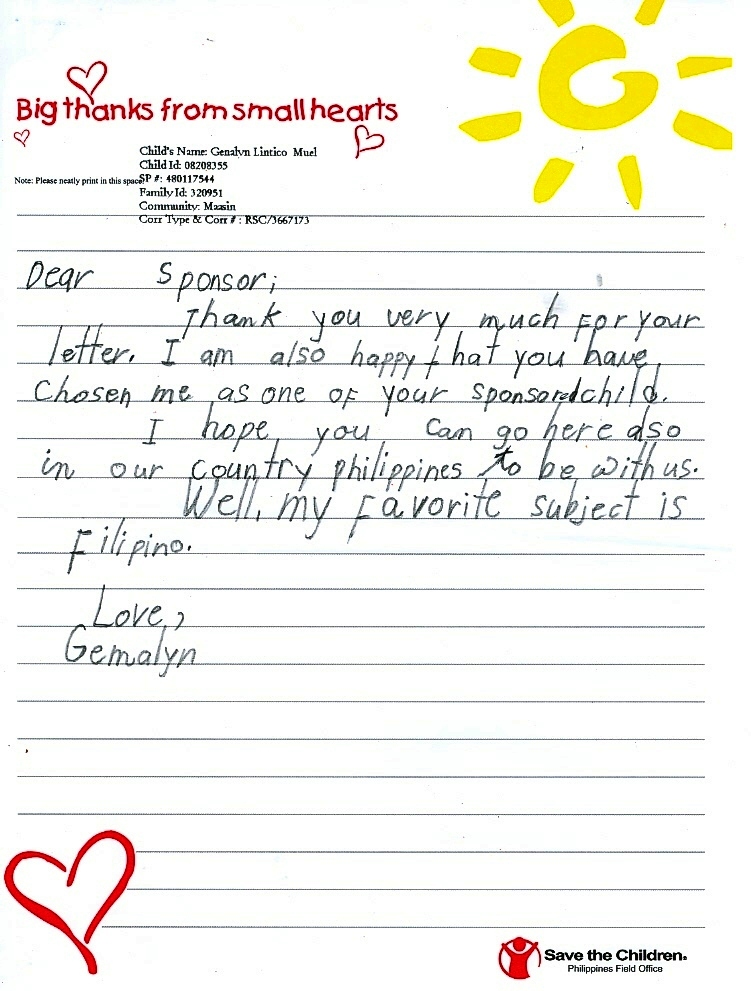 Big thanks from small hearts
Child's Name: Genalyn Lintico Muel
Child Id: 08208355
Note: Please neatly print in this space SP #: 480117544
Family Id: 320951
Community: Maasin
Corr Type & Corr # : RSC/3667173
Dear Sponsor;
Thank you very much for your
letter. I am also happy that you have
Chosen me as one of your sponsoredchild.
I hope you can go here also
in our country philippines to be with us.
Well, my favorite subject is
Filipino.
Love,
Gemalyn
Save the Children.
Philippines Field Office